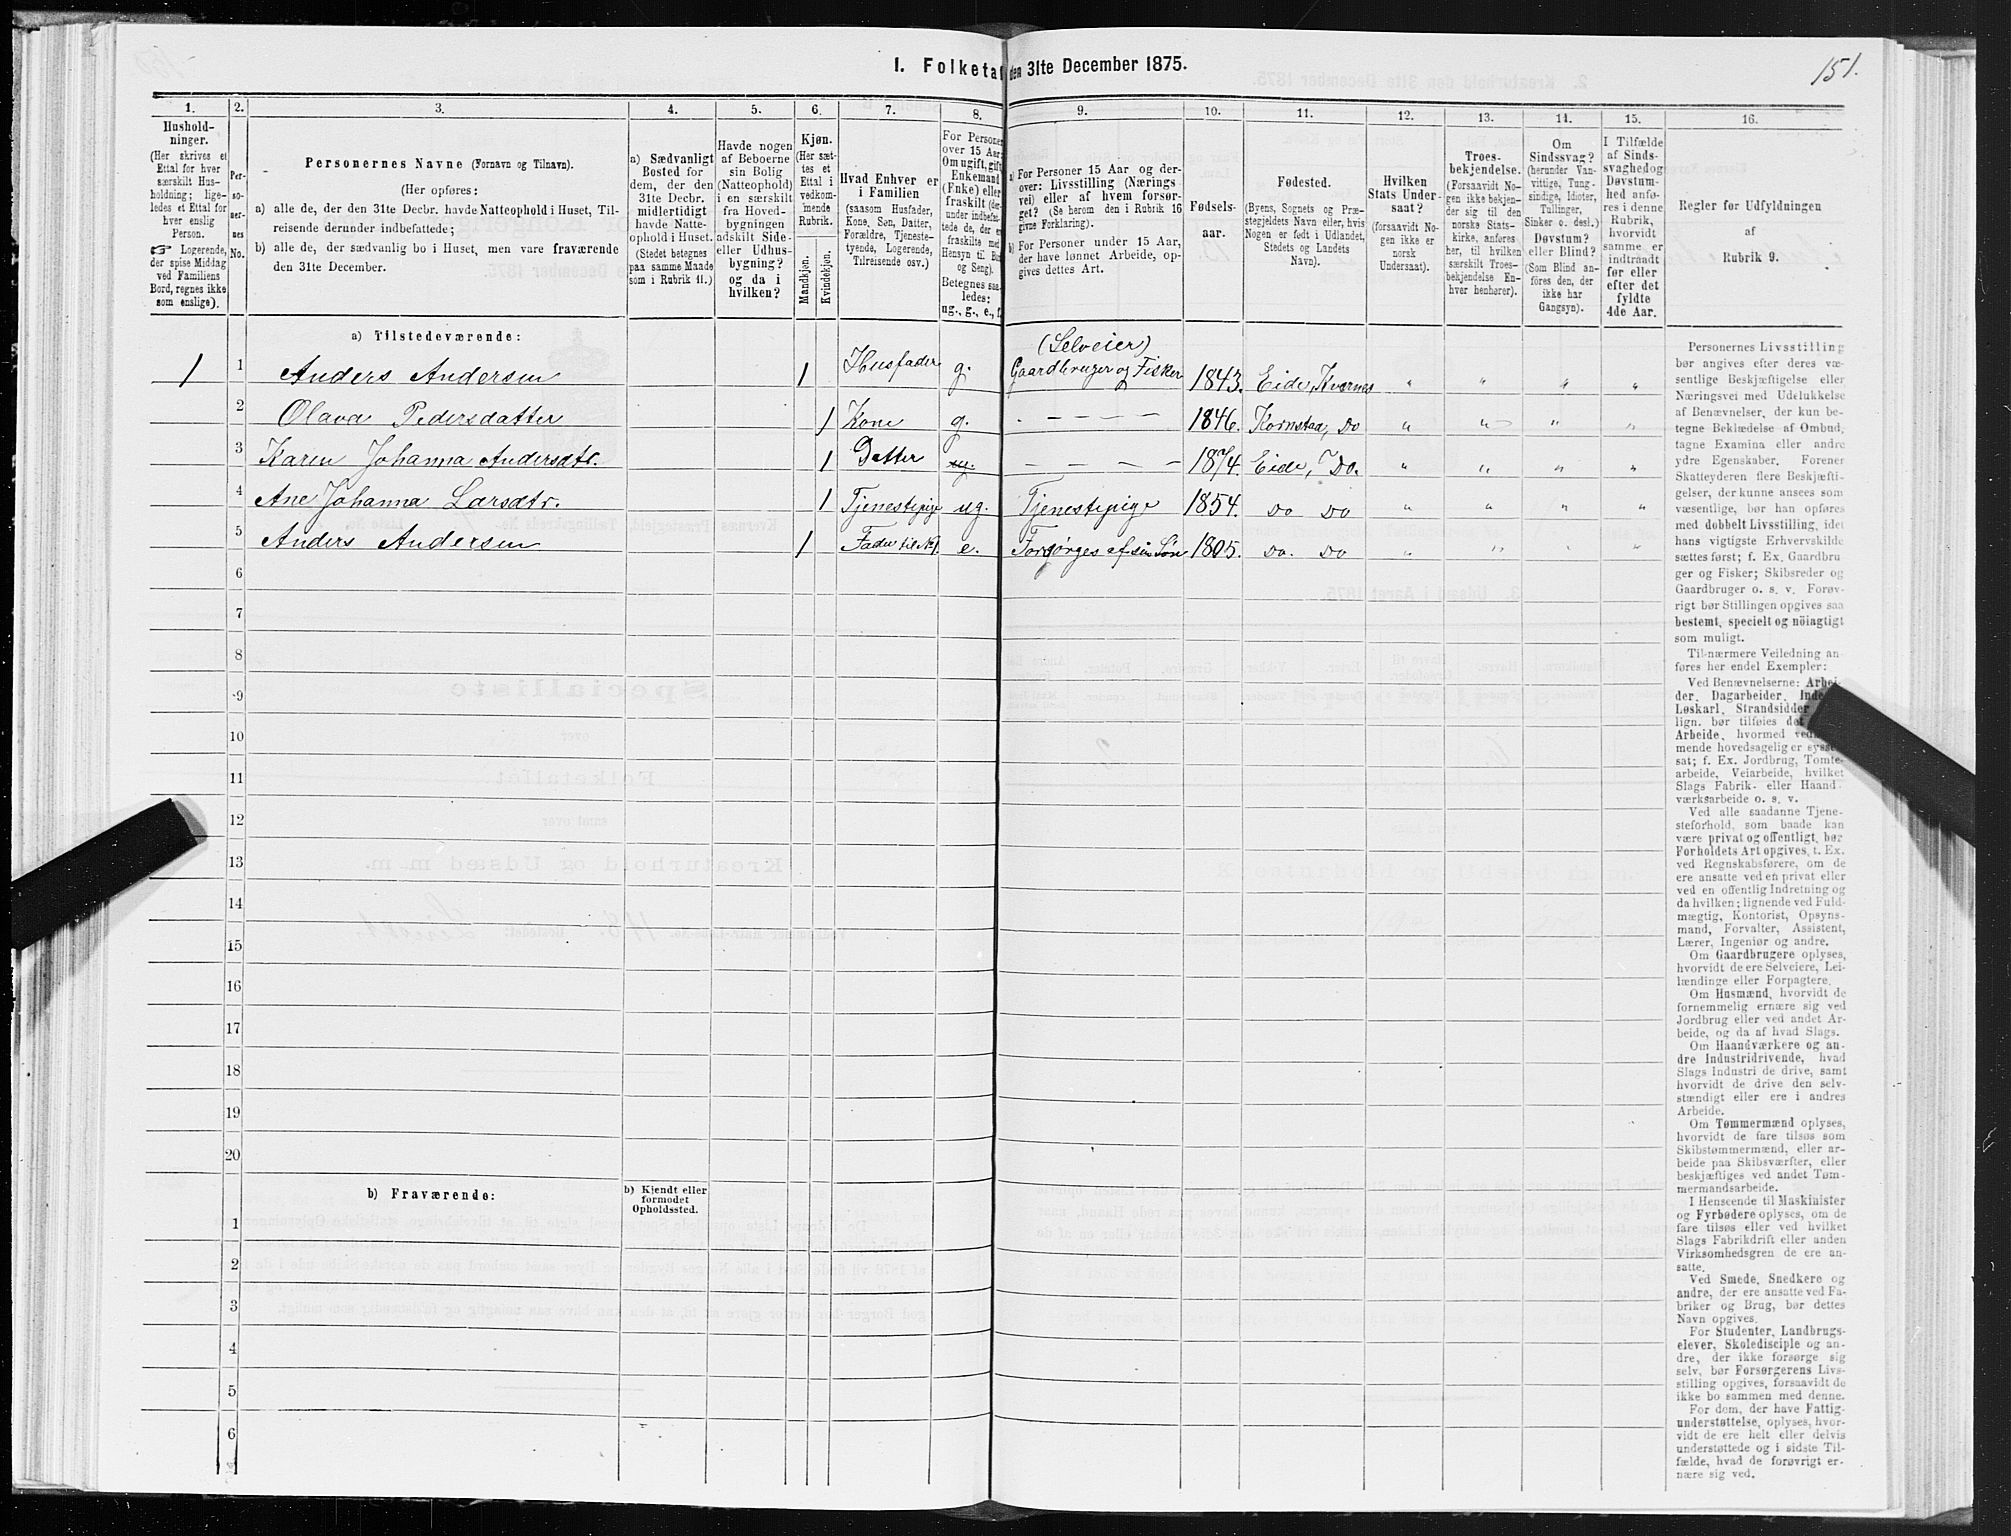 I. Folketal den 31te December 1875.
151.
1.
Hushold-
ninger.
(Her skrives et
Ettal for hver
særskilt Hus-
holdning; lige-
ledes et Ettal for
hver enslig
Person.
☞ Logerende,
der spise Middag
ved Familiens
Bord, regnes ikke
som enslige).
2.
Per-
so-
ner-
nes
No.
3.
Personernes Navne (Fornavn og Tilnavn).
(Her opføres:
a) alle de, der den 31te Decbr. havde Natteophold i Huset, Til-
reisende derunder indbefattede;
b) alle de, der sædvanlig bo i Huset, men vare fraværende
den 31te December.
4.
a) Sædvanligt
Bosted for
dem, der den
31te Decbr.
midlertidigt
havde Natte-
ophold i Huset.
(Stedet betegnes
paa samme Maade
som i Rubrik 11.)
5.
Havde nogen
af Beboerne
sin Bolig
(Natteophold)
i en særskilt
fra Hoved-
bygningen
adskilt Side-
eller Udhus-
bygning?
og da i
hvilken?
6.
Kjøn.
(Her sæt-
tes et
Ettal i
vedkom-
mende
Rubrik.
Mandkjøn.
Kvindekjøn.
7.
Hvad Enhver er
i Familien
(saasom Husfader,
Kone, Søn, Datter,
Forældre, Tjeneste-
tyende, Logerende,
Tilreisende osv.)
8.
For Personer
over 15 Aar:
Om ugift, gift,
Enkemand
(Enke) eller
fraskilt (der-
under indbefat-
tede de, der er
fraskilte med
Hensyn til Bord
og Seng).
Betegnes saa-
ledes:
ug., g., e., f.
9.
a) For Personer 15 Aar og der-
over: Livsstilling (Nærings-
vei) eller af hvem forsør-
get? (Se herom den i Rubrik 16
givne Forklaring).
b) For Personer under 15 Aar,
der have lønnet Arbeide, op-
gives dettes Art.
10.
Fødsels-
aar.
11.
Fødested.
(Byens, Sognets og Præ-
stegjeldets Navn eller, hvis
Nogen er født i Udlandet,
Stedets og Landets
Navn).
12.
Hvilken
Stats Under-
saat?
(forsaavidt No-
gen ikke er
norsk
Undersaat).
13.
Troes-
bekjendelse.
(Forsaavidt No-
gen ikke bekjen-
der sig til den
norske Stats-
kirke, anføres
her, til hvilken
særskilt Troes-
bekjendelse En-
hver henhører).
14.
Om
Sindssvag?
(herunder Van-
vittige, Tung-
sindige, Idioter,
Tullinger,
Sinker o. desl.)
Døvstum?
eller Blind?
(Som Blind an-
føres den, der
ikke har
Gangsyn).
15.
I Tilfælde
af Sinds-
svaghed og
Døvstum-
hed anfø-
res i denne
Rubrik,
hvorvidt
samme er
indtraadt
før eller
efter det
fyldte
4de Aar.
16.
Regler for Udfyldningen
af
Rubrik 9.
a) Tilstedeværende:
1 1 Anders Andersen 1 Husfader g. (Selveier) Gaardbruger og Fisker 1843. Eide, Kvernes " " " "
2 Olava Pedersdatter 1 Kone g. - - - - 1846. Kornstad, Do " " " "
3 Karen Johanna Andersdtr. 1 Datter ug. - - - - 1874. Eide, Do. " " " "
4 Ane Johanna Larsdtr. 1 Tjenestepige ug. Tjenestepige 1854. Do Do " " " "
5 Anders Andersen 1 Fader til No 1 e. Forsørges af sin Søn 1805. Do. Do " " " "
6
7
8
9
10
11
12
13
14
15
16
17
18
19
20
b) Fraværende:
b) Kjendt eller
formodet
Opholdssted.
1
2
3
4
5
6
Personernes Livsstilling
bør angives efter deres væ-
sentlige Beskjæftigelse eller
Næringsvei med Udelukkelse
af Benævnelser, der kun be-
tegne Beklædelse af Ombud,
tagne Examina eller andre
ydre Egenskaber. Forener
Skatteyderen flere Beskjæfti-
gelser, der kunne ansees som
væsentlige, bør han opføres
med dobbelt Livsstilling, idet
hans vigtigste Erhvervskilde
sættes først; f. Ex. Gaardbru-
ger og Fisker; Skibsreder og
Gaardbruger o. s. v. Forøv-
rigt bør Stillingen opgives saa
bestemt, specielt og nöiagtigt
som muligt.
Til nærmere Veiledning an-
føres her endel Exempler:
Ved Benævnelserne: Arbei-
der, Dagarbeider, Inde
Løskarl, Strandsidder
lign. bør tilføies det
Arbeide, hvormed ved
mende hovedsagelig er syssel-
sat; f. Ex. Jordbrug, Tomte-
arbeide, Veiarbeide, hvilket
Slags Fabrik- eller Haand-
værksarbeide o. s. v.
Ved alle saadanne Tjene-
steforhold, som baade kan
være privat og offentligt, bør
Forholdets Art opgives, t. Ex.
ved Regnskabsførere, om de
ere ansatte ved en privat eller
ved en offentlig Indretning og
da hvilken; lignende ved Fuld-
mægtig, Kontorist, Opsyns-
mand, Forvalter, Assistent,
Lærer, Ingeniør og andre.
Om Gaardbrugere oplyses,
hvorvidt de ere Selveiere, Lei-
lændinge eller Forpagtere.
Om Husmænd, hvorvidt de
fornemmelig ernære sig ved
Jordbrug eller ved andet Ar-
beide, og da af hvad Slags.
Om Haandværkere og an-
dre Industridrivende, hvad
Slags Industri de drive, samt
hvorvidt de drive den selv-
stændigt eller ere i andres
Arbeide.
Om Tømmermænd oplyses,
hvorvidt de fare tilsøs som
Skibstømmermænd, eller ar-
beide paa Skibsværfter, eller
beskjæftiges ved andet Tøm-
mermandsarbeide.
I Henseende til Maskinister
og Fyrbødere oplyses, om de
fare tilsøs eller ved hvilket
Slags Fabrikdrift eller anden
Virksomhedsgren de ere an-
satte.
Ved Smede, Snedkere og
andre, der ere ansatte ved Fa-
briker og Brug, bør dettes
Navn opgives.
For Studenter, Landbrugs-
elever, Skoledisciple og an-
dre, der ikke forsørge sig
selv, bør Forsørgerens Livs-
stilling opgives, forsaavidt de
ikke bo sammen med denne.
For dem, der have Fattig-
understøttelse, oplyses, hvor-
vidt de ere helt eller delvis
understøttede og i sidste Til-
fælde, hvad de forøvrigt er-
nære sig ved.